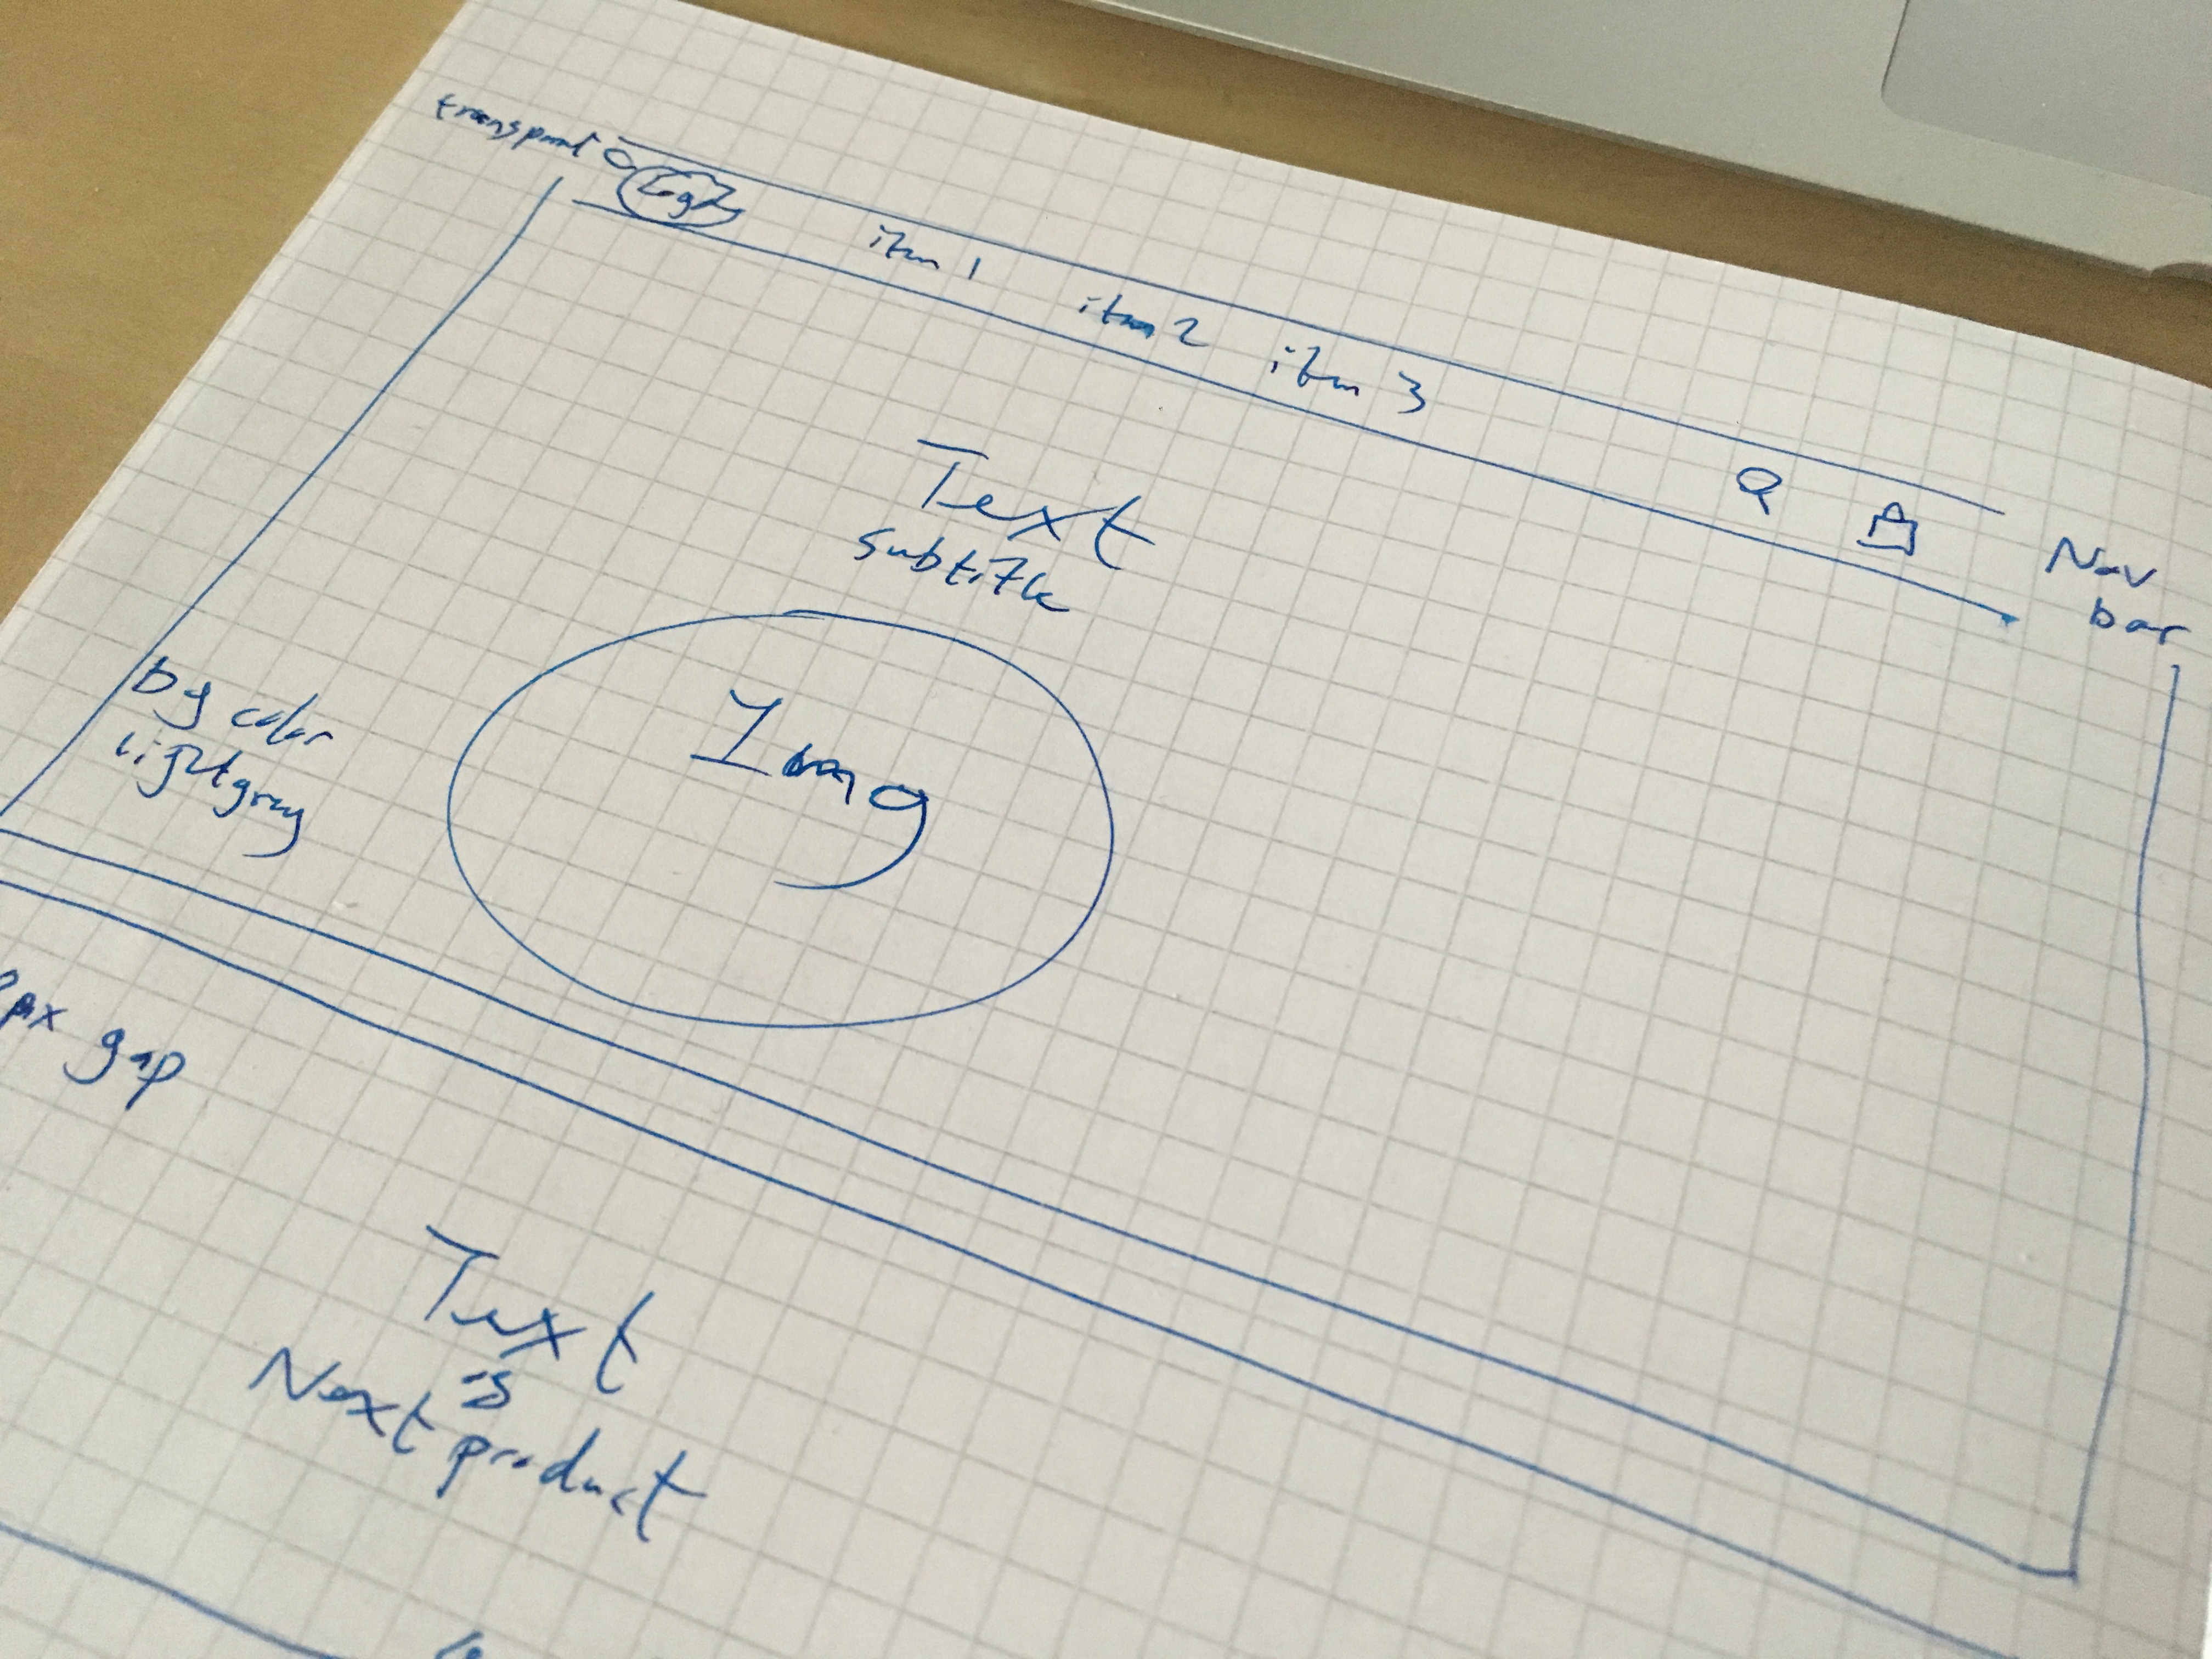 transparent
Logo
item 1
item 2
item 3
Nav
bar
Text
subtitle
Img
bg color
lightgray
px gap
Text
is
Next product